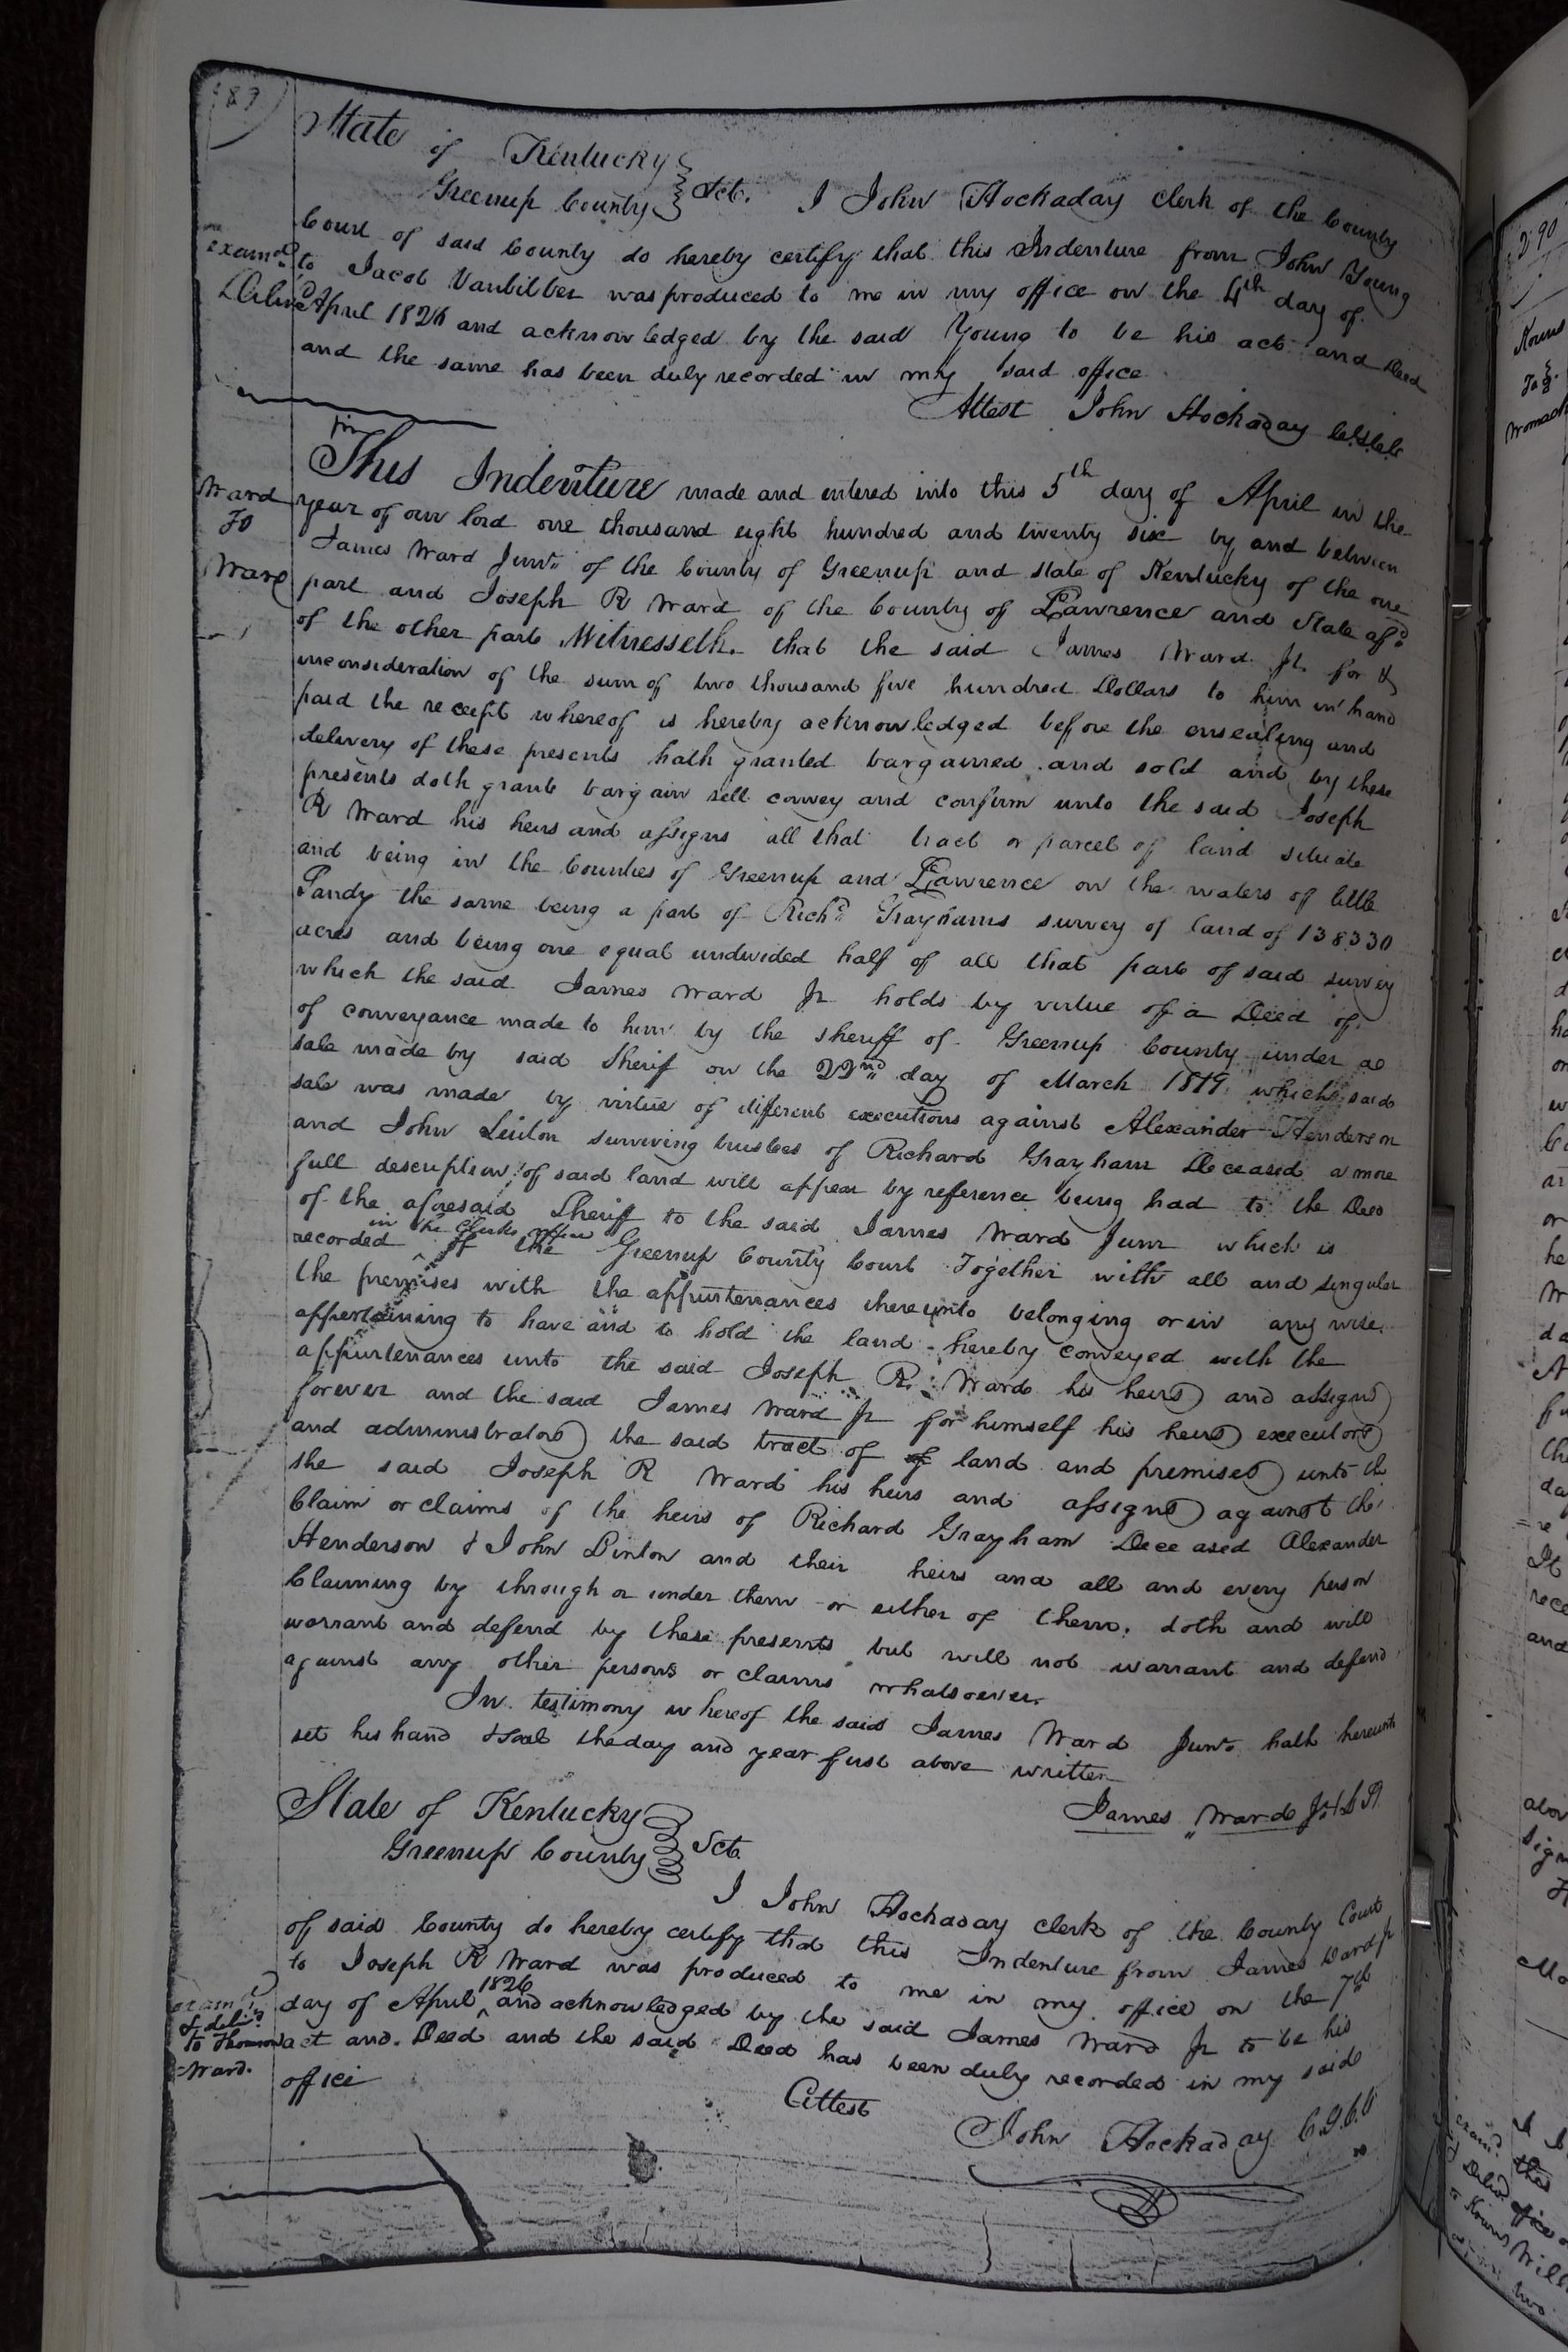 89
State of Kentucky
Greenup County Sct. I John Hockaday clerk of the County
Court of said County do hereby certify that this Indenture from John Young
examd. to Jacob Vanbibber was produced to me in my office on the 4th day of
Delivd April 1826 and acknowledged by the said Young to be his act and Deed
and the same has been duly recorded in my said office
Attest John Hockaday
This Indenture made and entered into this 5th day of April in the
Ward
To
Ward
year of our lord one thousand eight hundred and twenty six by and between
James Ward Junr of the County of Greenup and state of Kentucky of the one
part and Joseph R Ward of the County of Lawrence and State afd
of the other part Witnesseth. that the said James Ward Jr. for &
inconsideration of the sum of two thousand five hundred Dollars to him in hand
paid the receipt whereof is hereby acknowledged before the ensealing and
delivery of these presents hath granted bargained and sold and by these
presents doth grant bargain sell convey and confirm unto the said Joseph
R Ward his heirs and assigns all that tract or parcel of land situate
and being in the Counties of Greenup and Lawrence on the waters of little
Sandy the same being a part of Richd Grayhams survey of land of 138330
acres and being one equal undivided half of all that part of said survey
which the said James Ward Jr holds by virtue of a Deed of
of conveyance made to him by the sheriff of Greenup County under a
sale made by said Sherif on the 22nd day of March 1819 which said
sale was made by virtue of different executions against Alexander Henderson
and John Linton surviving trustees of Richard Grayham Deceased a more
full description of said land will appear by reference being had to the Deed
of the aforesaid Sheriff to the said James Ward Junr which is
in the Clerks office
recorded of the Greenup County Court Together with all and singular
the premises with the appurtenances thereunto belonging or in any wise
appertaining to have and to hold the land hereby conveyed with the
appurtenances unto the said Joseph R. Ward his heirs and assigns
forever and the said James Ward Jr for himself his heirs executors
and administrators the said tract of of land and premises unto the
she said Joseph R Ward his heirs and assigns against the
Claim or claims of the heirs of Richard Grayham Deceased Alexander
Henderson & John Linton and their heirs and all and every person
Claiming by through or under them or either of them. doth and will
warrant and defend by these presents but will not warrant and defend
against any other persons or claims whatsoever.
In testimony whereof the said James Ward Junr hath hereunto
set his hand & seal the day and year first above written
James Ward Jr
State of Kentucky
Greenup County Sct.
I John Hockaday clerk of the County Court
of said County do hereby certify that this Indenture from James Ward Jr
to Joseph R Ward was produced to me in my office on the 7th
1826
day of April and acknowledged by the said James Ward Jr to be his
examd.
& delivd.
to Thomas
Ward.
act and Deed and the said Deed has been duly recorded in my said
office
Attest
John Hockaday C.G.C.C